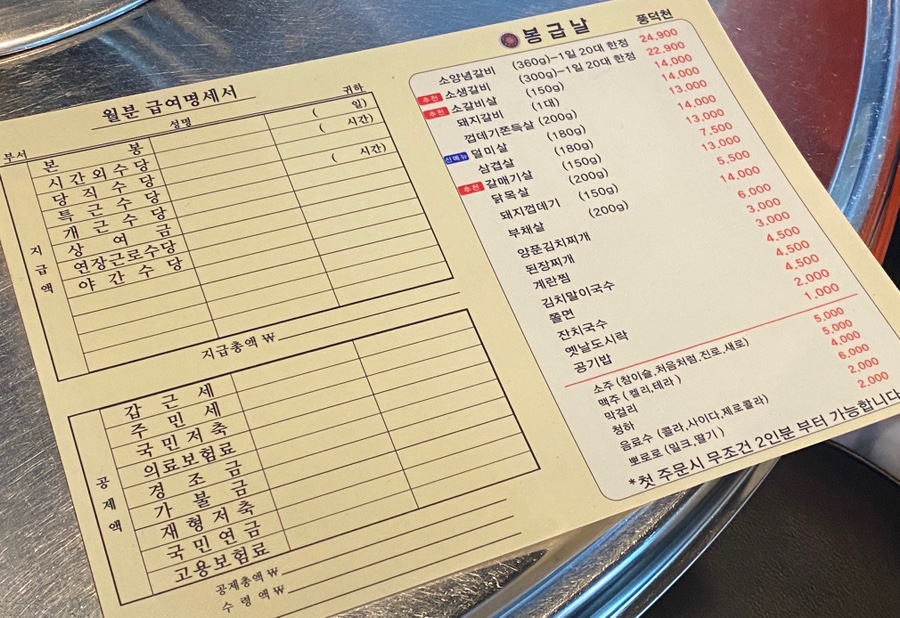 월분 급여명세서
성명
귀하
부서
지급액
본 봉 ( 일)
시간외수당 ( 시간)
당직수당
특근수당 ( 시간)
개근수당
상여금
연장근로수당
야간수당
지급총액 ₩
공제액
갑근세
주민세
국민저축
의료보험료
경조금
가불금
재형저축
국민연금
고용보험료
공제총액 ₩
수령액 ₩
봉급날 풍덕천
소양념갈비 (360g)-1일 20대 한정 24,900
추천 소생갈비 (300g)-1일 20대 한정 22,900
추천 소갈비살 (150g) 14,000
돼지갈비 (1대) 14,000
껍데기쫀득살 (200g) 13,000
신메뉴 덜미살 (180g) 14,000
삼겹살 (180g) 13,000
추천 갈매기살 (150g) 7,500
닭목살 (200g) 13,000
돼지껍데기 (150g) 5,500
부채살 (200g) 14,000
양푼김치찌개 6,000
된장찌개 3,000
계란찜 3,000
김치말이국수 4,500
쫄면 4,500
잔치국수 4,500
옛날도시락 2,000
공기밥 1,000
소주 (참이슬,처음처럼,진로,새로) 5,000
맥주 (켈리,테라) 5,000
막걸리 4,000
청하 6,000
음료수 (콜라,사이다,제로콜라) 2,000
뽀로로 (밀크,딸기) 2,000
*첫 주문시 무조건 2인분 부터 가능합니다